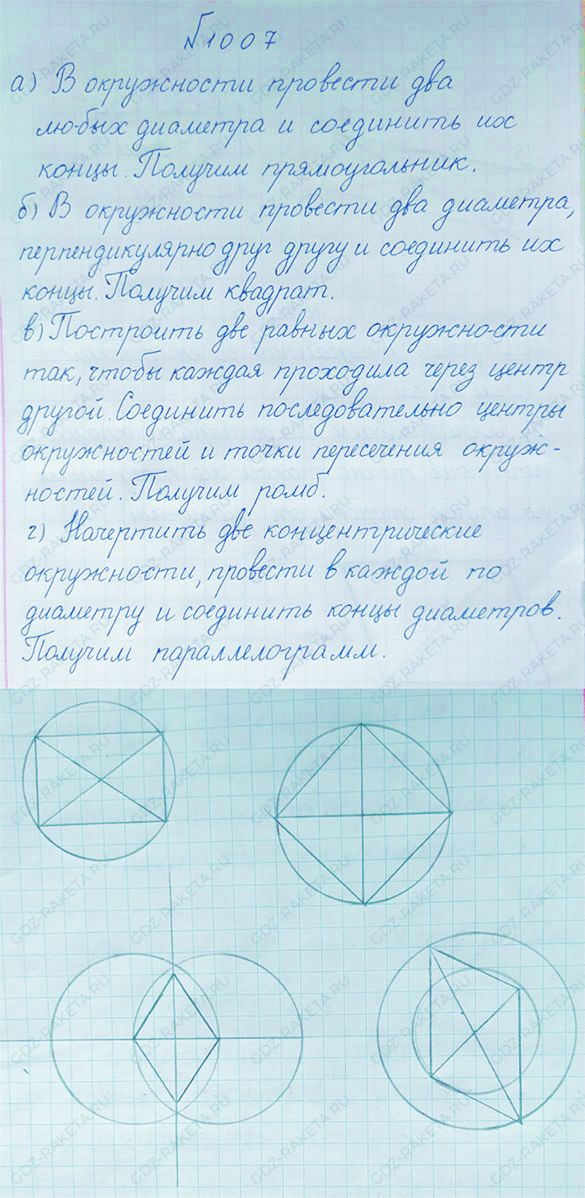 №1007
а) В окружности провести два
любых диаметра и соединить их
концы. Получим прямоугольник.
б) В окружности провести два диаметра,
перпендикулярно друг другу и соединить их
концы. Получим квадрат.
в) Построить две равных окружности
так, чтобы каждая проходила через центр
другой. Соединить последовательно центры
окружностей и точки пересечения окруж-
ностей. Получим ромб.
г) Начертить две концентрические
окружности, провести в каждой по
диаметру и соединить концы диаметров.
Получим параллелограмм.
GDZ-RAKETA.RU